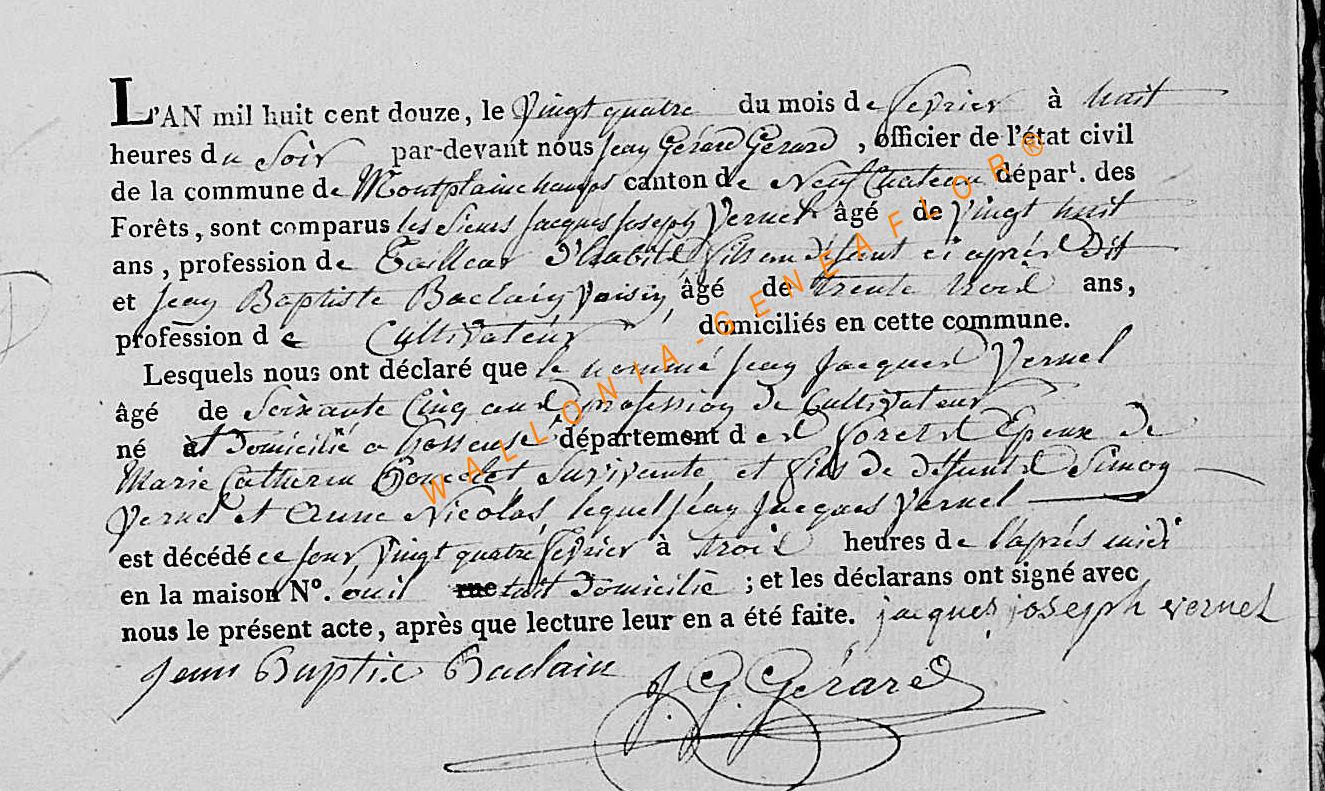 L'AN mil huit cent douze, le Vingt quatre du mois de fevrier à huit
heures du Soir par-devant nous Jean Gérard Gérard, officier de l'état civil
de la commune de Montplainchamps canton de Neufchateau départ. des
Forêts, sont comparus les Sieurs Jacques Joseph Vernel âgé de Vingt huit
ans, profession de Tailleur d'habits fils du défunt ci après Dit
et Jean Baptiste Baclain Voisin, âgé de trente trois ans,
profession de Cultivateur, domiciliés en cette commune.
Lesquels nous ont déclaré que le nommé Jean Jacques Vernel
âgé de Soixante Cinq ans profession de Cultivateur
né et Domicilié a département des Forets Epoux de
Marie Catherin Survivante et fils de defunts Simon
Vernel et Anne Nicolas, lequel Jean Jacques Vernel
est décédé ce Jour, Vingt quatre fevrier à trois heures de l'après midi
en la maison N°. ou il etait Domicilié ; et les déclarans ont signé avec
nous le présent acte, après que lecture leur en a été faite. jacques joseph vernel
Jean Baptis Baclain J. G. Gérard
WALLONIA-GENEAFLOR®